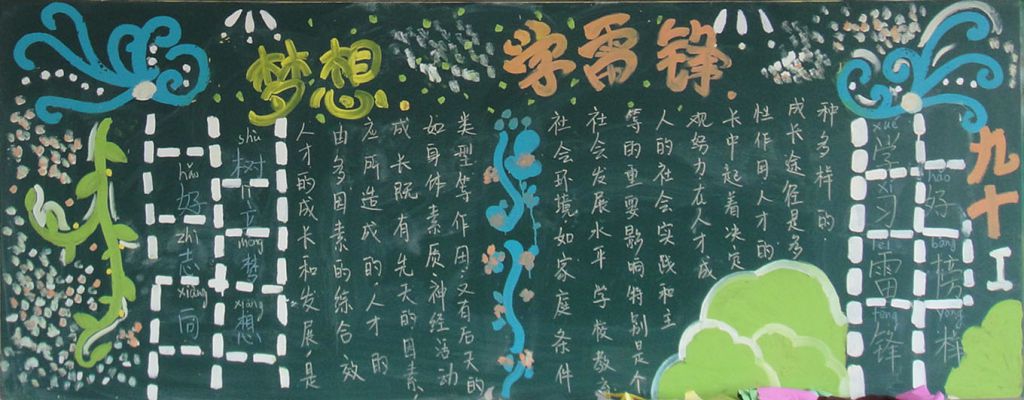 梦想
学雷锋
hǎo zhì xiàng
好志向
shù mèng xiǎng
树立梦想
人才的成长和发展,是
由多因素的综合效
应所造成的.人才的
成长既有先天的因素,
如身体素质,神经活动
类型等作用,又有后天的
社会环境如家庭条件
社会发展水平 学校教育
等的重要影响特别是个
人的社会实践和主
观努力在人才成
长中起着决定
性作用人才的
成长途径是多
种多样的
xué xí léi fēng
学习雷锋
hǎo bǎng yàng
好榜样
九十工